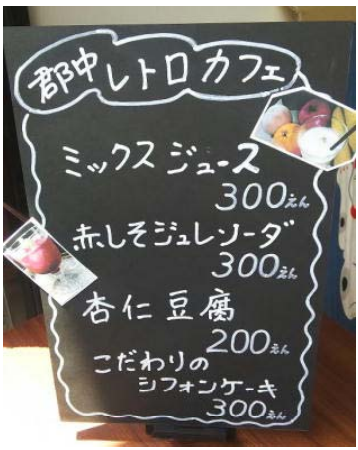 郡中レトロカフェ
ミックスジュース
300えん
赤しそジュレソーダ
300えん
杏仁豆腐
200えん
こだわりの
シフォンケーキ
300えん